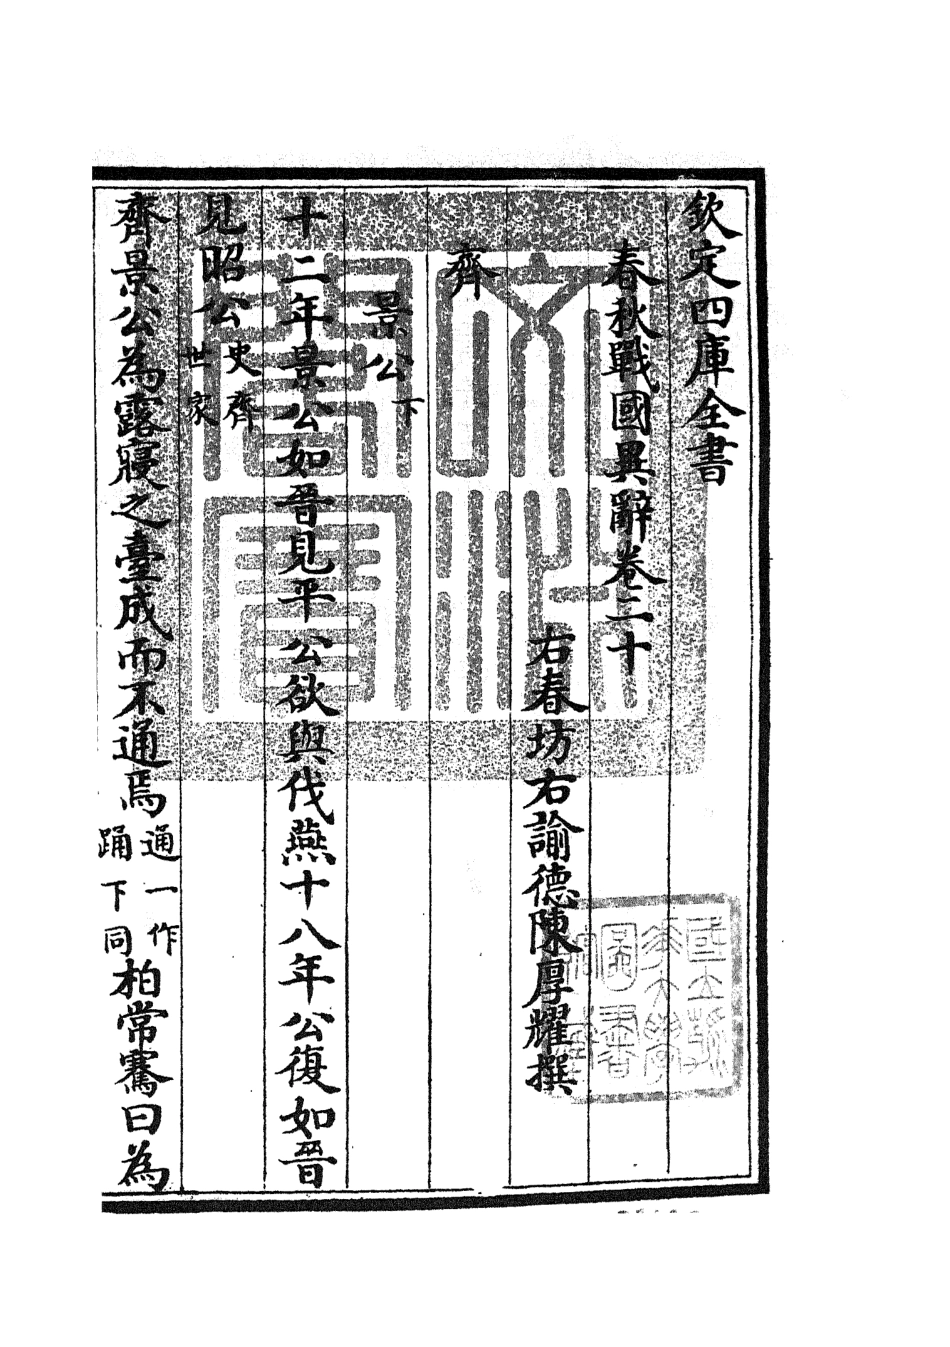 欽定四庫全書
春秋戰國異辭卷三十
右春坊右諭德陳厚耀撰
齊
景公下
十二年景公如晉見平公欲與伐燕十八年公復如晉
見昭公史齊世家
齊景公為露寢之臺成而不通焉通一作踊下同柏常騫曰為